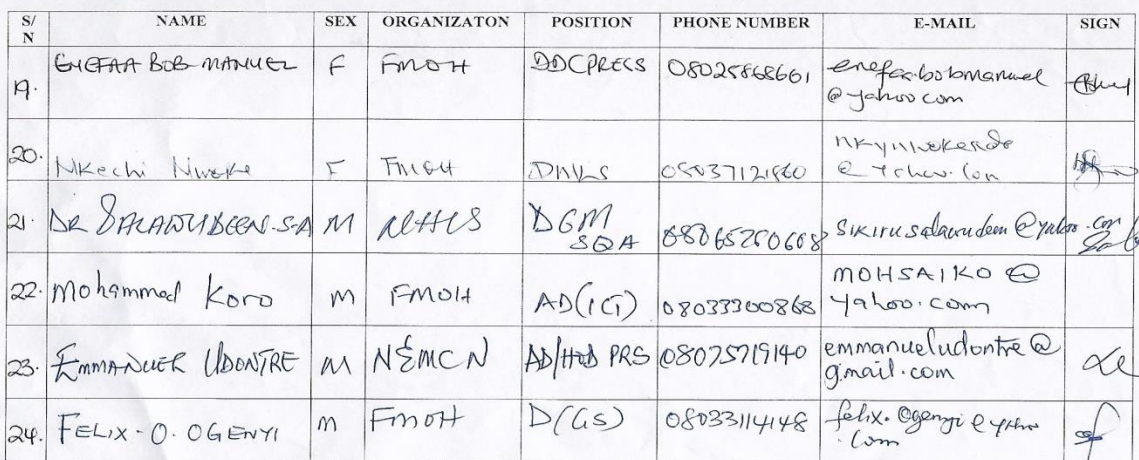 S/N NAME SEX ORGANIZATON POSITION PHONE NUMBER E-MAIL SIGN
19. ENEFAA BOB-MANUEL F FMOH DDCPRECS 08025868661 enefaabobmanuel
@yahoo.com
20. Nkechi Nweke F FMOH 08037121860
@ yahoo.com
21. DR SALAWUDEEN.S.A M DGM sikirusalawudeen@yahoo.com
SQA
22. Mohammed Koro M FMOH AD(ICT) 08033300868 MOHSAIKO @
yahoo.com
23. EMMANUEL UDONTRE M N&MCN AD/HOD PRS 08075719140 emmanueludontre@
gmail.com
24. FELIX-O. OGENYI M FMOH D(GS) 08033114148 felix.ogenyi@yahoo
.com